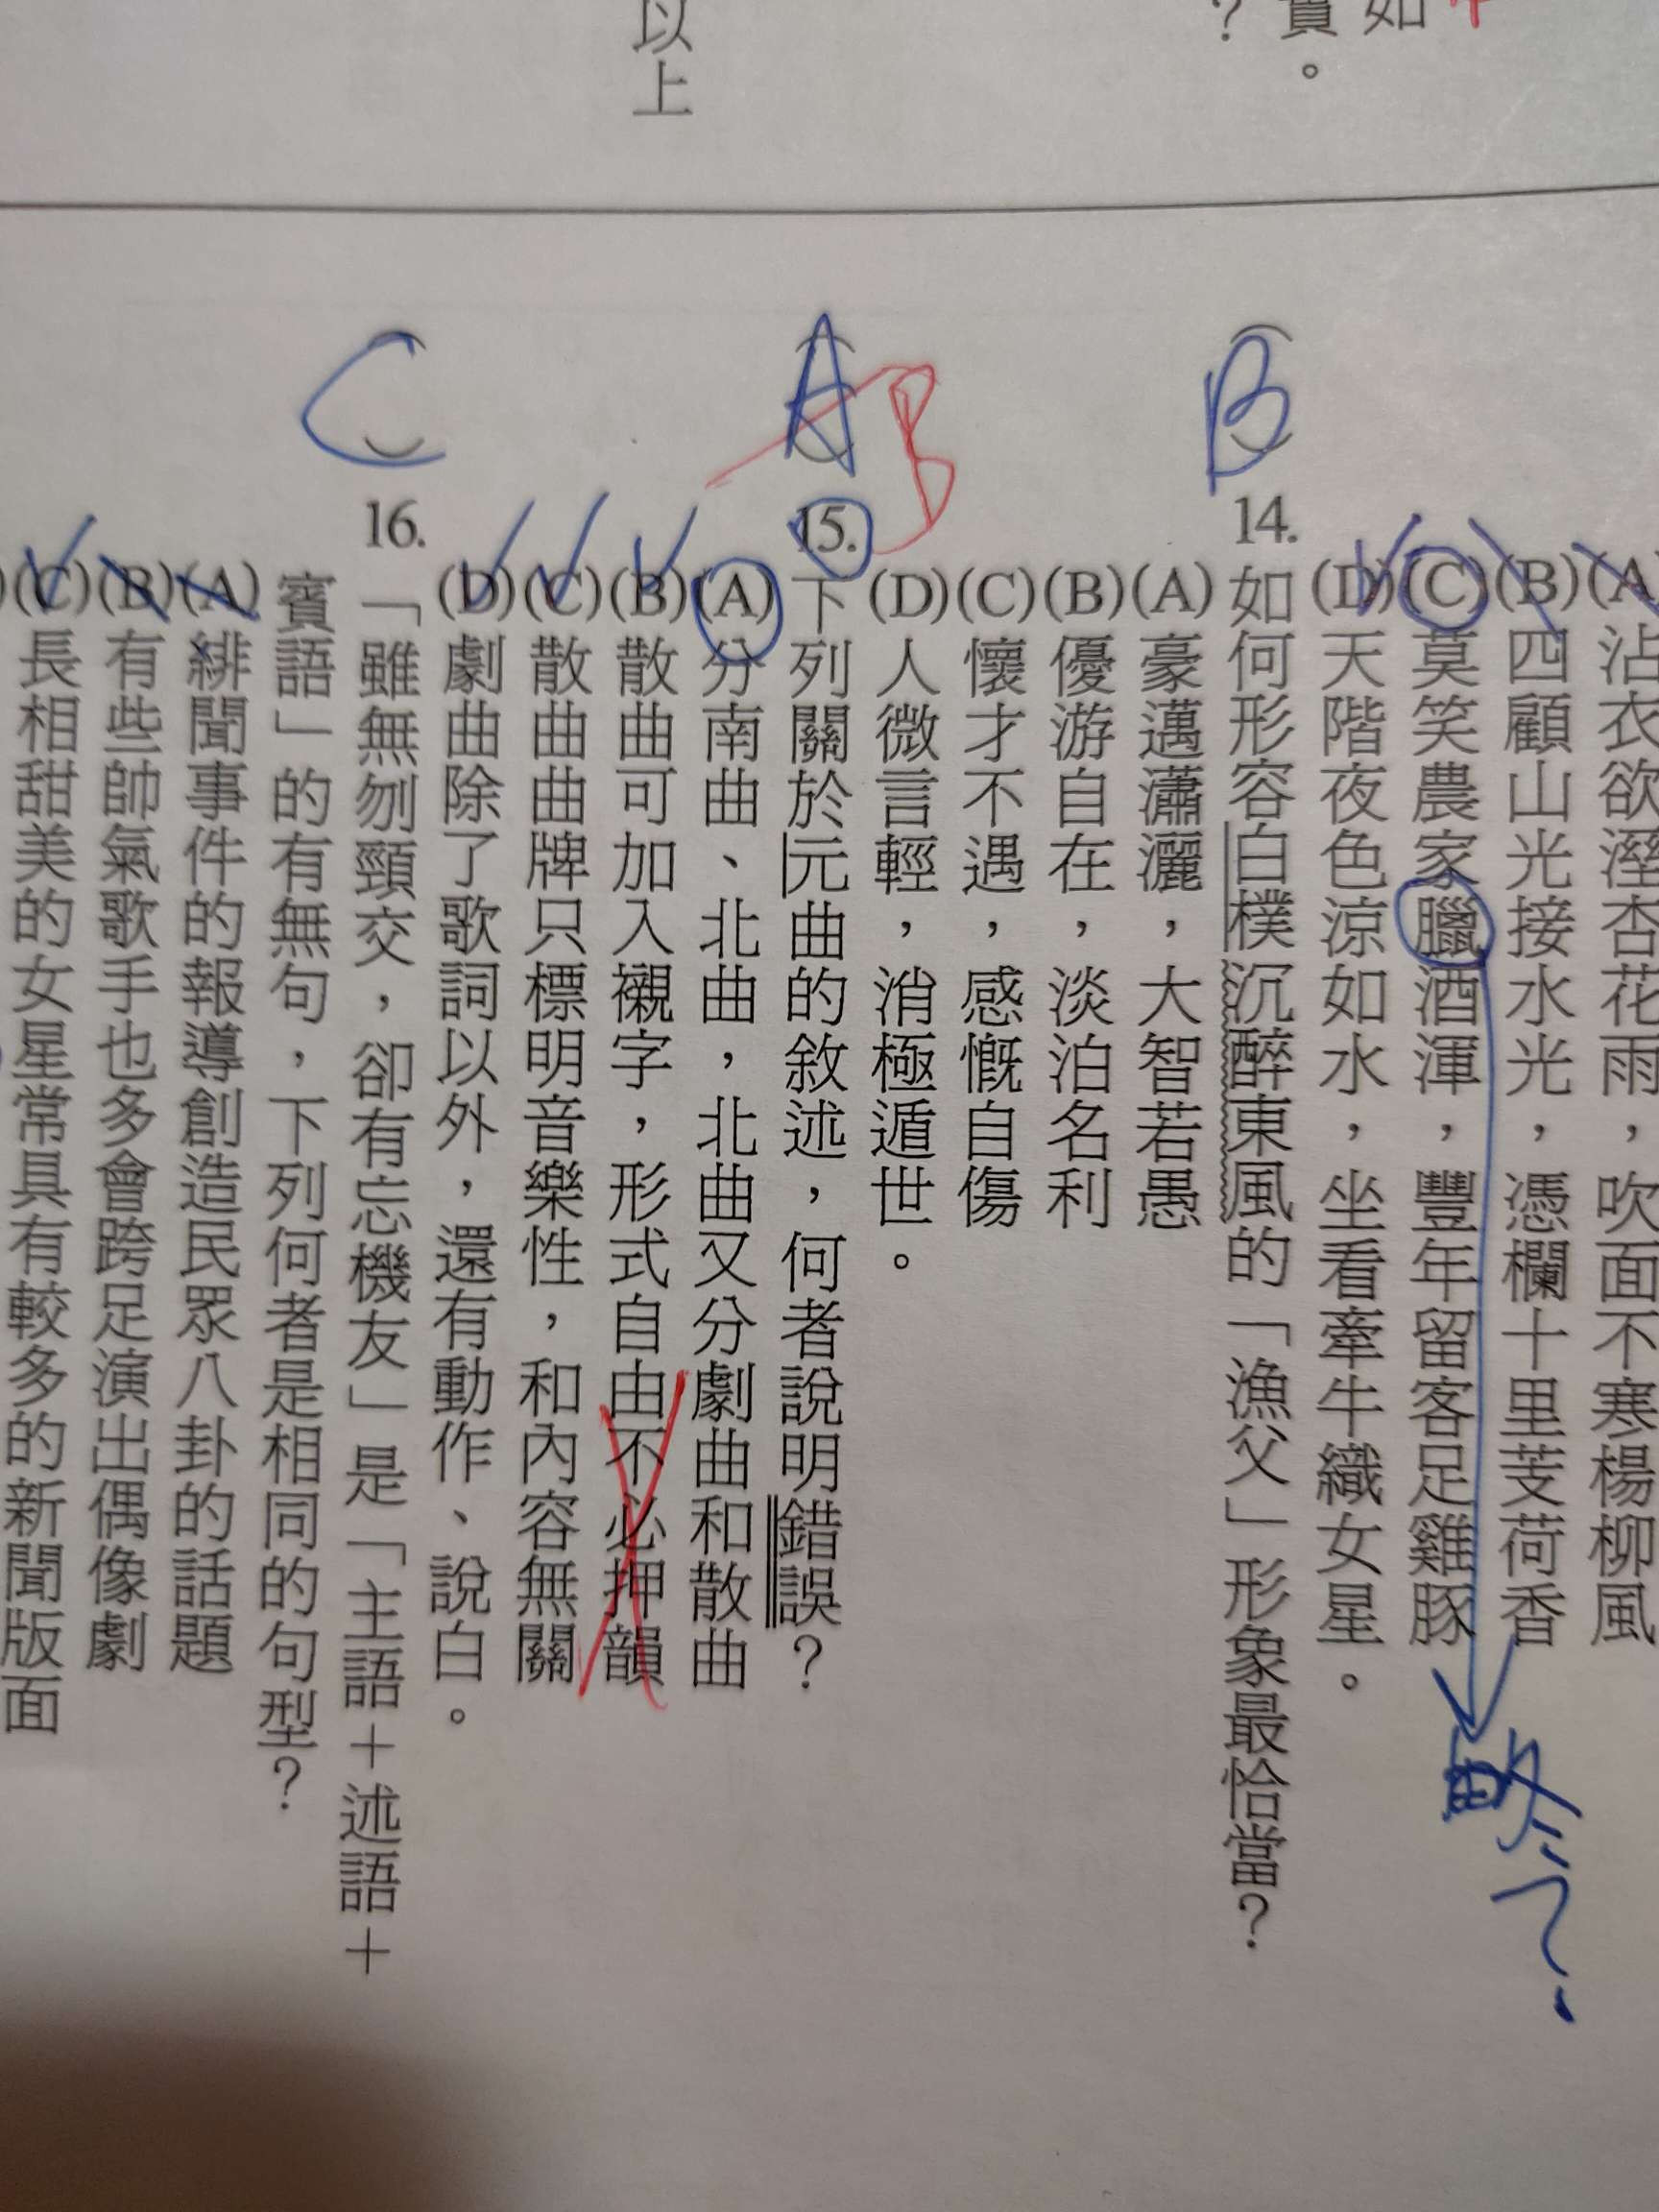 如
賞。
？
以上
沾衣欲溼杏花雨，吹面不寒楊柳風
(B)四顧山光接水光，憑欄十里芰荷香
(C)莫笑農家臘酒渾，豐年留客足雞豚
(D)天階夜色涼如水，坐看牽牛織女星。
略
B
14.如何形容白樸沉醉東風的「漁父」形象最恰當？
(A)豪邁瀟灑，大智若愚
(B)優游自在，淡泊名利
(C)懷才不遇，感慨自傷
(D)人微言輕，消極遁世。
A B
15.下列關於元曲的敘述，何者說明錯誤？
(A)分南曲、北曲，北曲又分劇曲和散曲
(B)散曲可加入襯字，形式自由不必押韻
(C)散曲曲牌只標明音樂性，和內容無關
(D)劇曲除了歌詞以外，還有動作、說白。
C
16.「雖無刎頸交，卻有忘機友」是「主語＋述語＋
賓語」的有無句，下列何者是相同的句型？
(A)緋聞事件的報導創造民眾八卦的話題
(B)有些帥氣歌手也多會跨足演出偶像劇
(C)長相甜美的女星常具有較多的新聞版面